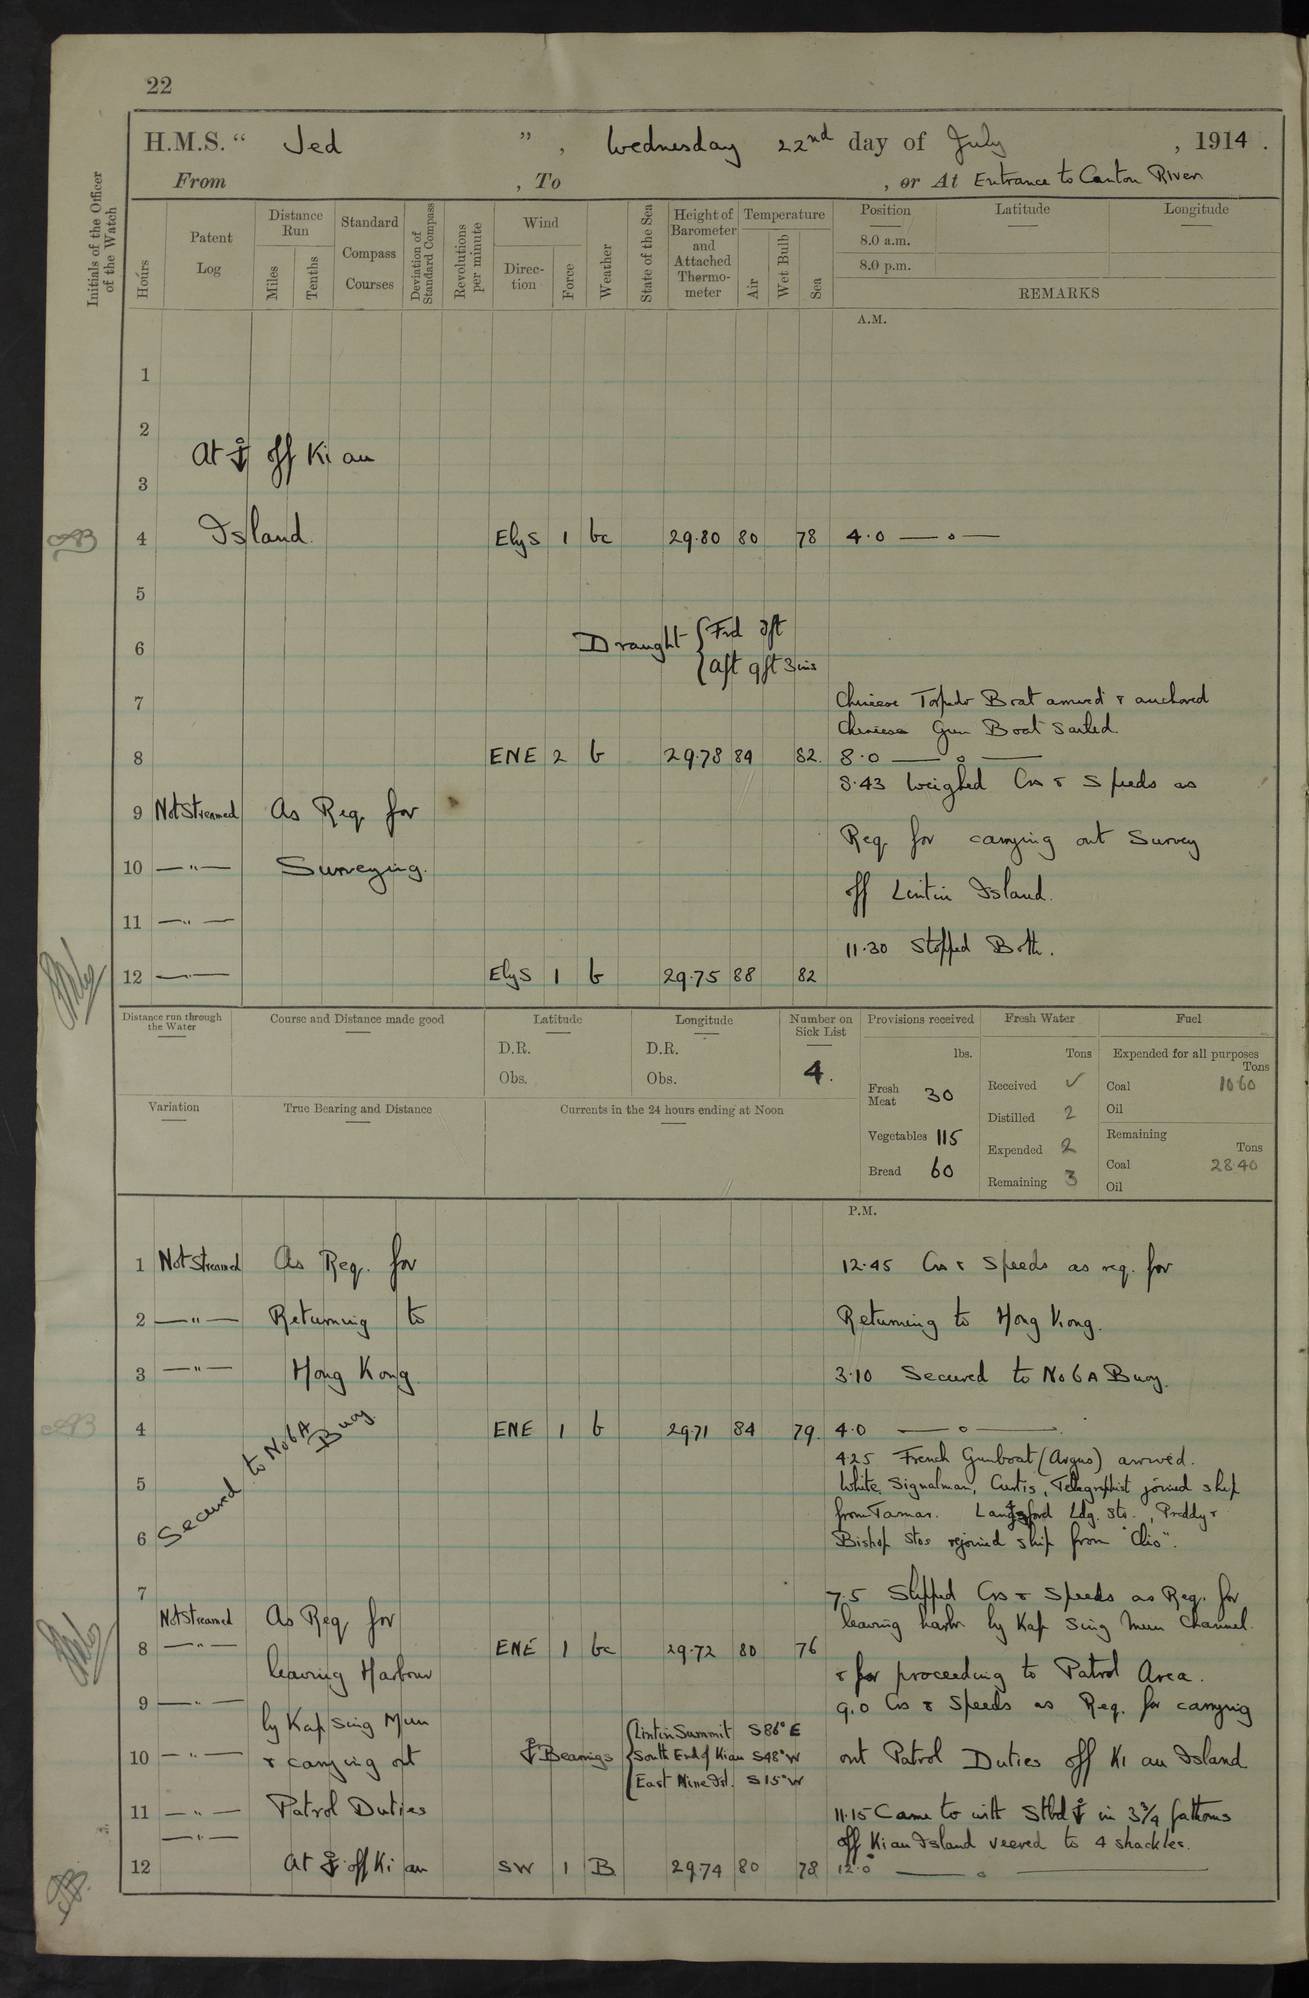 22
H.M.S. “ Jed ” , Wednesday 22nd day of July , 1914 .
From , To , or At Entrance to Canton River
Initials of the Officer of the Watch
Hours
Patent Log
Distance Run
Miles
Tenths
Standard Compass Courses
Deviation of Standard Compass
Revolutions per minute
Wind
Direction
Force
Weather
State of the Sea
Height of Barometer and Attached Thermometer
Temperature
Air
Wet Bulb
Sea
Position Latitude Longitude
8.0 a.m.
8.0 p.m.
REMARKS
A.M.
1
2
At ⚓ off Ki au
3
4 Island. Elys 1 bc 29.80 80 78 4.0 — o —
5
6 Draught { Frd
{ Aft 9ft 3ins
7 Chinese Torpedo Boat arrived & anchored
Chinese Gun Boat sailed.
8 ENE 2 b 29.78 84 82. 8.0 — o —
8.43 Weighed Cos & Speeds as
9 Not Streamed As Req. for
Req for carrying out Survey
10 — " — Surveying.
off Lintin Island.
11 — " —
11.30 Stopped Both.
12 — " — Elys 1 b 29.75 88 82
Distance run through the Water
Course and Distance made good
Latitude
D.R.
Obs.
Longitude
D.R.
Obs.
Number on Sick List
4.
Provisions received
lbs.
Fresh Meat 30
Vegetables 115
Bread 60
Fresh Water
Tons
Received ✓
Distilled 2
Expended 2
Remaining 3
Fuel
Expended for all purposes
Tons
Coal 10.60
Oil
Remaining
Tons
Coal 28.40
Oil
Variation
True Bearing and Distance
Currents in the 24 hours ending at Noon
P.M.
1 Not Streamed As Req. for 12.45 Cos & Speeds as req. for
2 — " — Returning to Returning to Hong Kong.
3 — " — Hong Kong. 3.10 Secured to No 6A Buoy.
Secured to No 6A Buoy
4 ENE 1 b 29.71 84 79. 4.0 — o —
4.25 French Gunboat (Argus) arrived.
5 White, Signalman, Curtis, Telegraphist joined ship
from Tamar. Langsford Ldg. Sto., Preddy &
6 Bishop Stos rejoined ship from "Clio".
7 7.5 Slipped Cos & Speeds as Req. for
Not Streamed As Req for leaving harbr by Kap Sing Mun Channel.
8 — " — ENE 1 bc 29.72 80 76
leaving Harbour & for proceeding to Patrol Area.
9 — " — 9.0 Cos & Speeds as Req. for carrying
by Kap Sing Mun
⚓ Bearings { Lintin Summit S86°E
10 — " — & carrying out { South End of Kiau S48°W out Patrol Duties off Ki au Island
{ East Nine Isl. S15°W
11 — " — Patrol Duties 11.15 Came to with Stbd ⚓ in 3¾ fathoms
— " — off Kiau Island veered to 4 shackles.
12 At ⚓ off Ki au SW 1 B 29.74 80 78 12.0 — o —